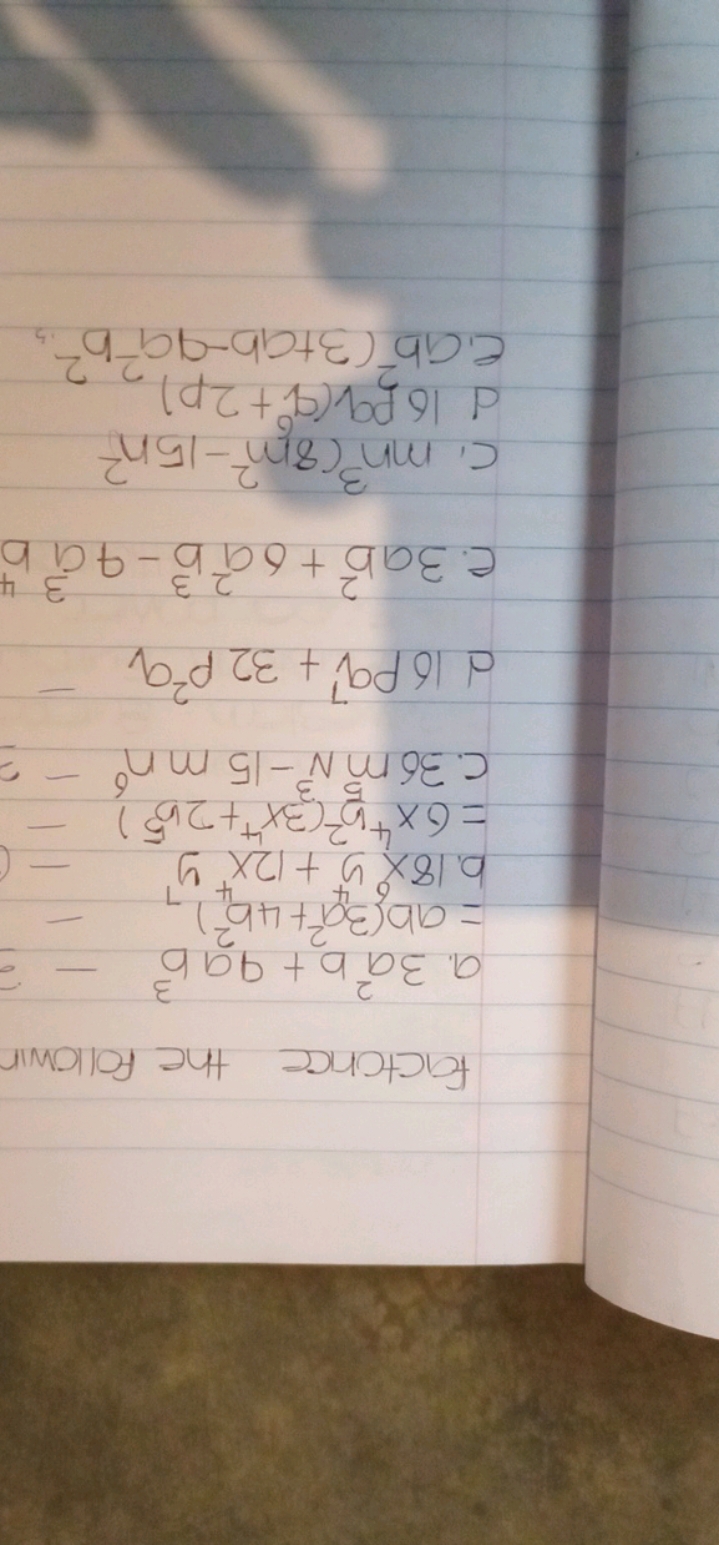 Factorise the Followin
a. 3a²b + 9ab³ – 
= ab(3a²+4b²) –
b. 18x⁶y⁴ + 12x⁴y⁷ –
= 6x⁴y²(3x⁴+2y⁵) –
c. 36m⁵N³ – 15mn⁶ –
d 16pq⁷ + 32p²q –
e. 3ab² + 6a²b³ – 9a³b⁴
c. mn³(8m² – 15n²
d 16pq(q⁶ + 2p)
e. ab²(3+ab–9a²b²